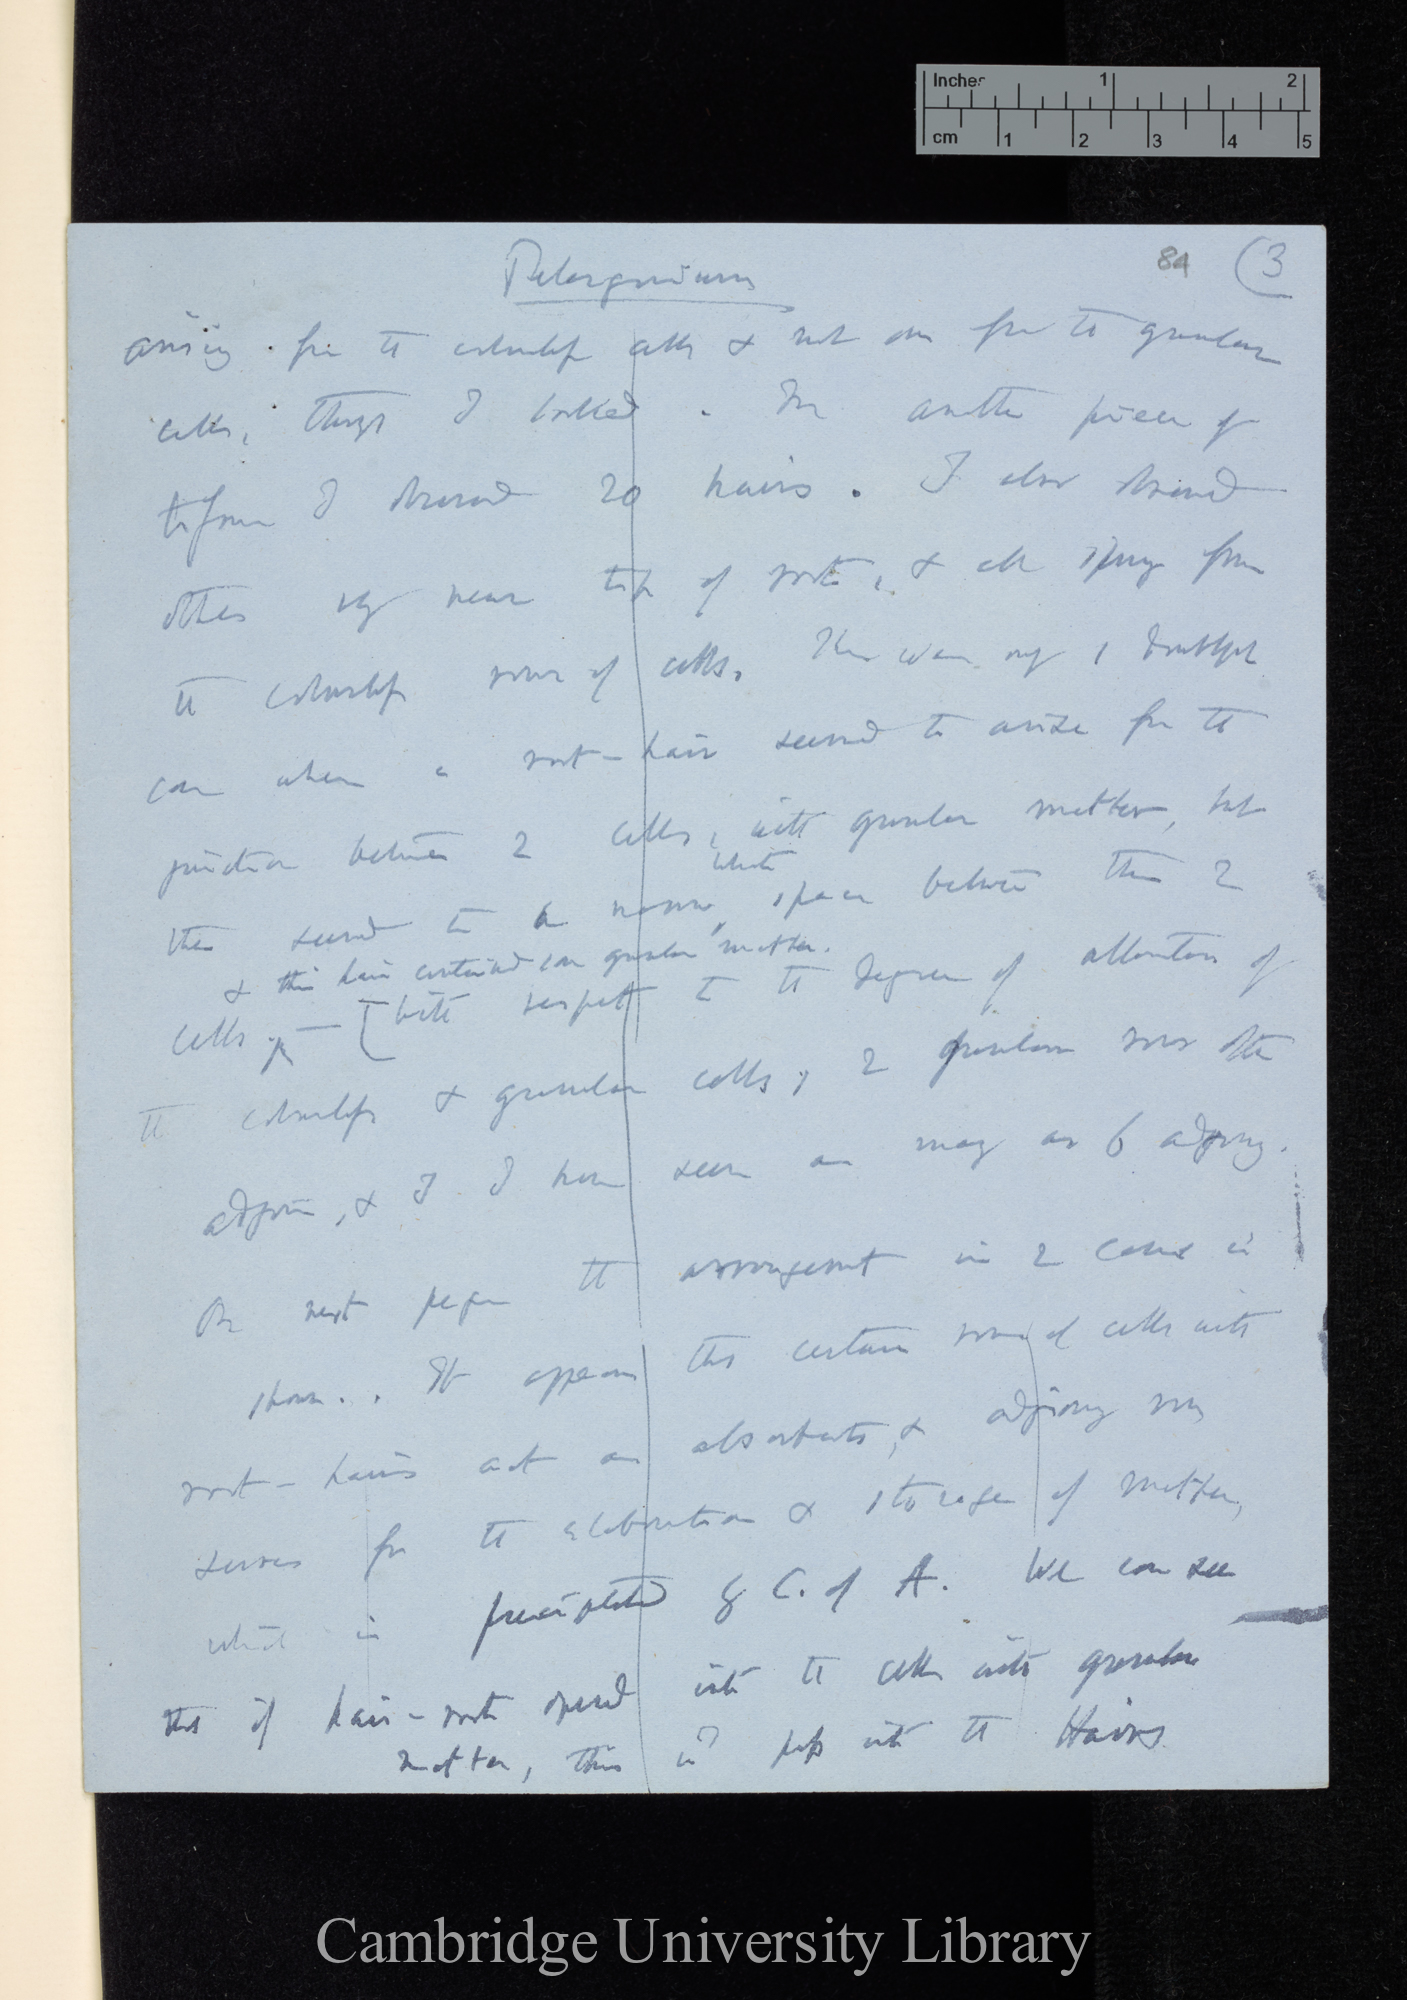 Inches 1 2
cm 1 2 3 4 5
Pelargonium
84 (3
arising from the colourless cells & not one from the granular
cells, though I looked. In another piece of
I observed 20 hairs. I also observed
others very near tip of root, & all sprung from
the colourless rows of cells. There was only 1 doubtful
case where a root-hair seemed to arise from the
junction between 2 cells, with granular matter, but
white
there seemed to be narrow space between the 2
& this hair contained some granular matter.
cells. — [With respect to the degree of alternation of
the colourless & granular cells, 2 granular rows often
adjoin, & I have seen as many as 6 adjoining.
On next page the arrangement in 2 cases is
shown. It appears that certain rows of cells with
root-hairs act as absorbents, & adjoining rows
serves for the elaboration & storage of matter,
which is precipitated by C. of A. We can see
that if hair-roots opened into the cells with granular
matter, this wd pass into the Hairs.
Cambridge University Library